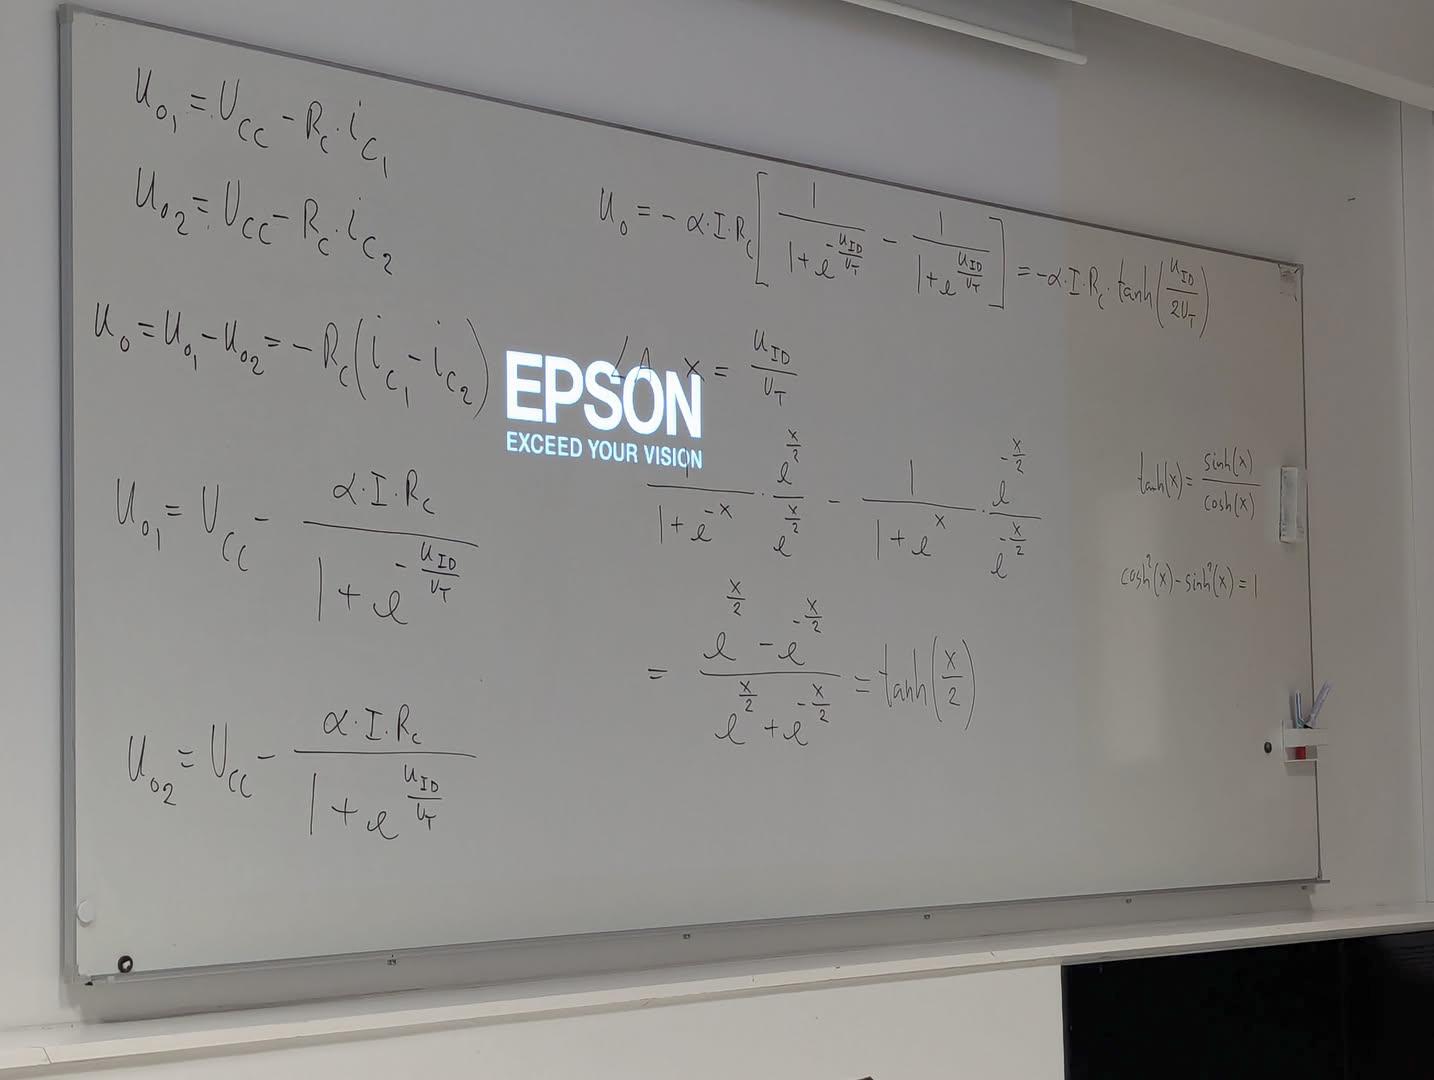 u_{o1} = U_{CC} - R_C · i_{C1}
u_{o2} = U_{CC} - R_C · i_{C2}
u_o = u_{o1} - u_{o2} = - R_C (i_{C1} - i_{C2})
u_{o1} = U_{CC} - \frac{α · I · R_C}{1 + e^{-\frac{u_{ID}}{U_T}}}
u_{o2} = U_{CC} - \frac{α · I · R_C}{1 + e^{\frac{u_{ID}}{U_T}}}
u_o = - α · I · R_C [ \frac{1}{1 + e^{-\frac{u_{ID}}{U_T}}} - \frac{1}{1 + e^{\frac{u_{ID}}{U_T}}} ] = - α · I · R_C · tanh(\frac{u_{ID}}{2U_T})
x = \frac{u_{ID}}{U_T}
EPSON
EXCEED YOUR VISION
\frac{1}{1 + e^{-x}} · \frac{e^{\frac{x}{2}}}{e^{\frac{x}{2}}} - \frac{1}{1 + e^{x}} · \frac{e^{-\frac{x}{2}}}{e^{-\frac{x}{2}}}
= \frac{e^{\frac{x}{2}} - e^{-\frac{x}{2}}}{e^{\frac{x}{2}} + e^{-\frac{x}{2}}} = tanh(\frac{x}{2})
tanh(x) = \frac{sinh(x)}{cosh(x)}
cosh²(x) - sinh²(x) = 1